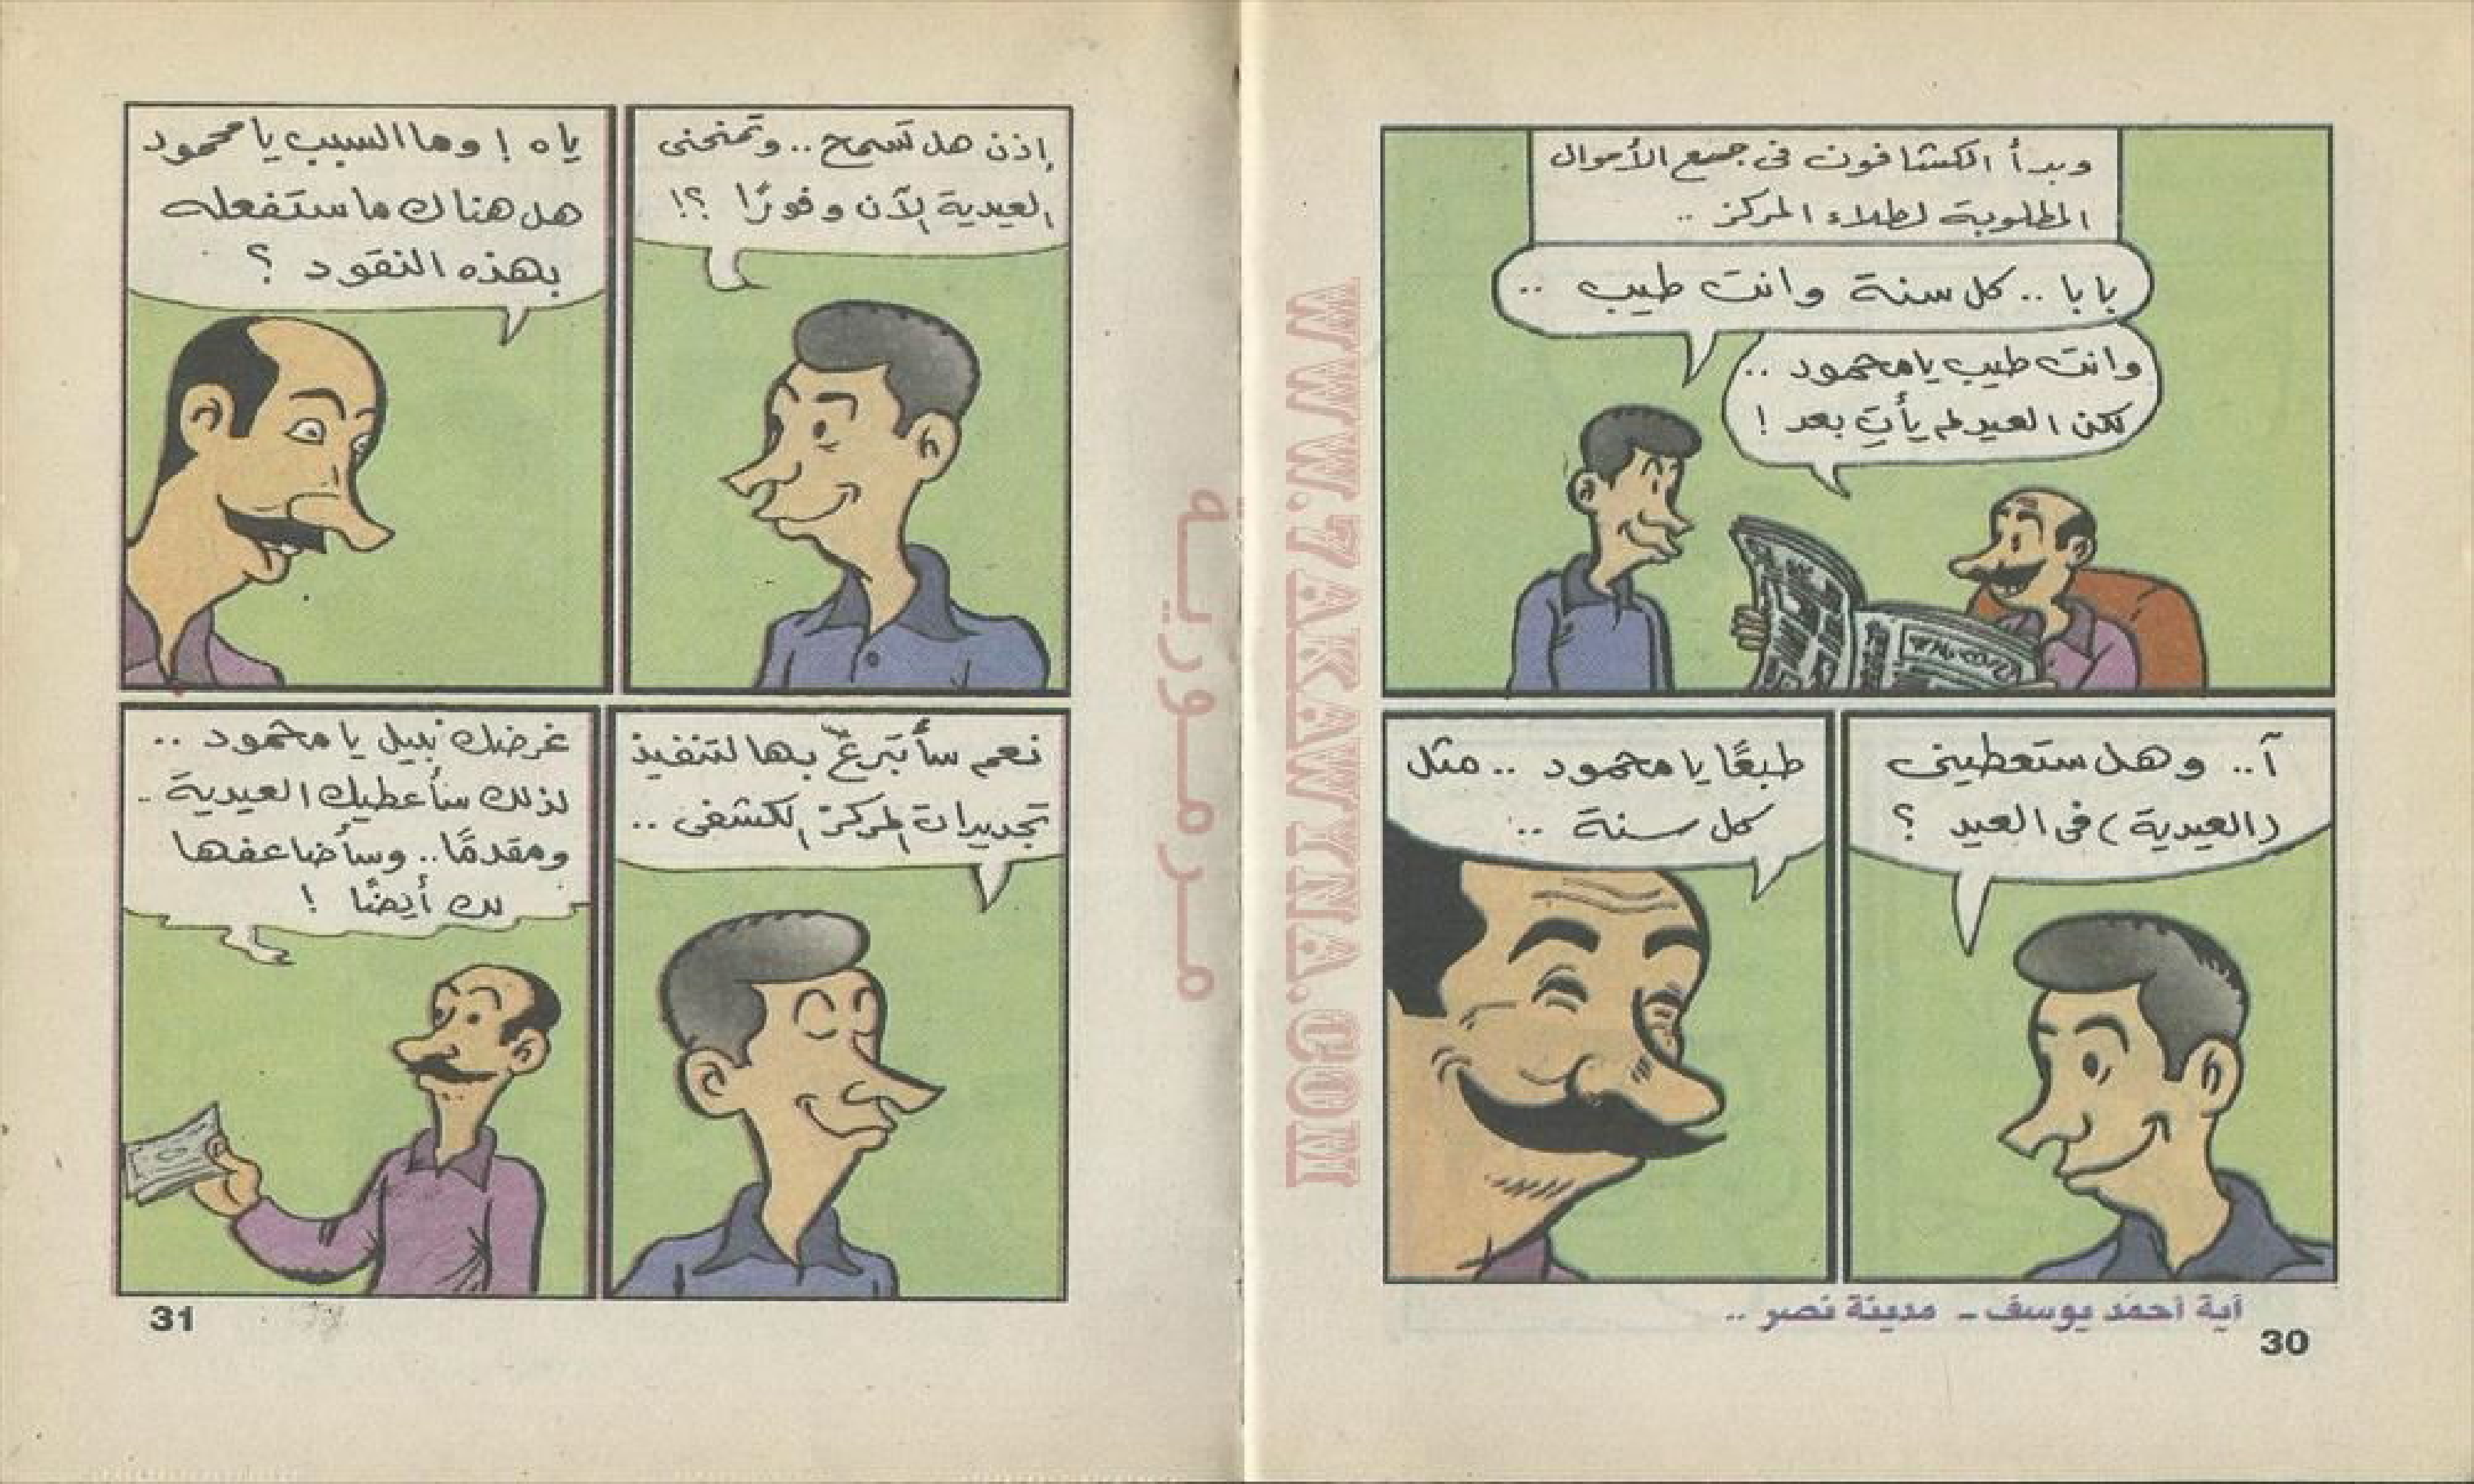 وبدأ الكشافون فى جمع الأموال
المطلوبة لطلاء المركز ..
بابا .. كل سنة وانت طيب ..
وانت طيب يا محمود ..
لكن العيد لم يأتِ بعد !
آ .. وهل ستعطينى
( العيدية ) فى العيد ؟
طبعًا يا محمود .. مثل
كل سنة ..
آية أحمد يوسف - مدينة نصر ..
30
WWW.ZAKAWYNA.COM
مرمورية
إذن هل تسمح .. وتمنحنى
العيدية الآن وفورًا ؟!
ياه ! وما السبب يا محمود
هل هناك ما ستفعله
بهذه النقود ؟
نعم سأتبرع بها لتنفيذ
تجديدات المركز الكشفى ..
غرضك نبيل يا محمود ..
لذلك سأعطيك العيدية ..
ومقدمًا .. وسأضاعفها
لك أيضًا !
31